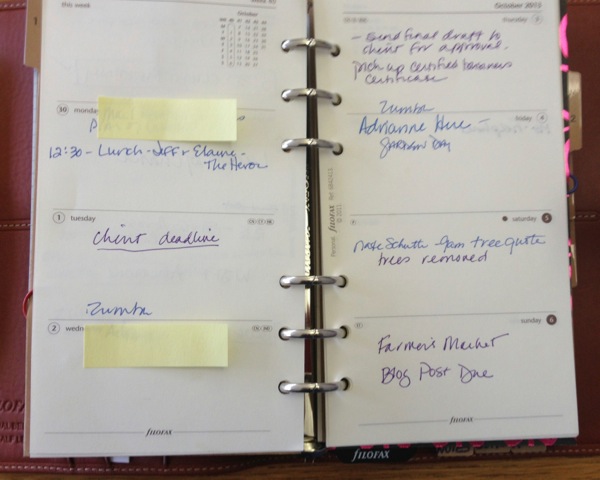 this week
October
30 monday
12:30 - Lunch - Jeff & Elaine -
The Heron
1 tuesday
Client deadline
Zumba
2 wedn
filofax
October 2013
thursday 3
- Send final draft to
client for approval.
Pick up certified
certificate
Zumba
friday 4
Adrianne Here -
Garden Day
saturday 5
Nate Schutte - 9am tree quote
trees removed
sunday 6
Farmer's Market
Blog Post Due
filofax
Personal filofax © 2013
FILOFAX
1
2